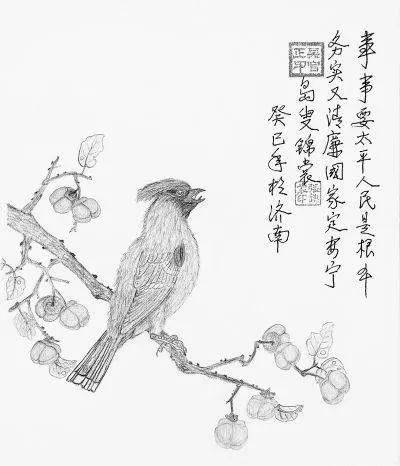 事事要太平人民是根本
务实又清廉國家定安宁
岛叟锦裳
癸巳年於济南